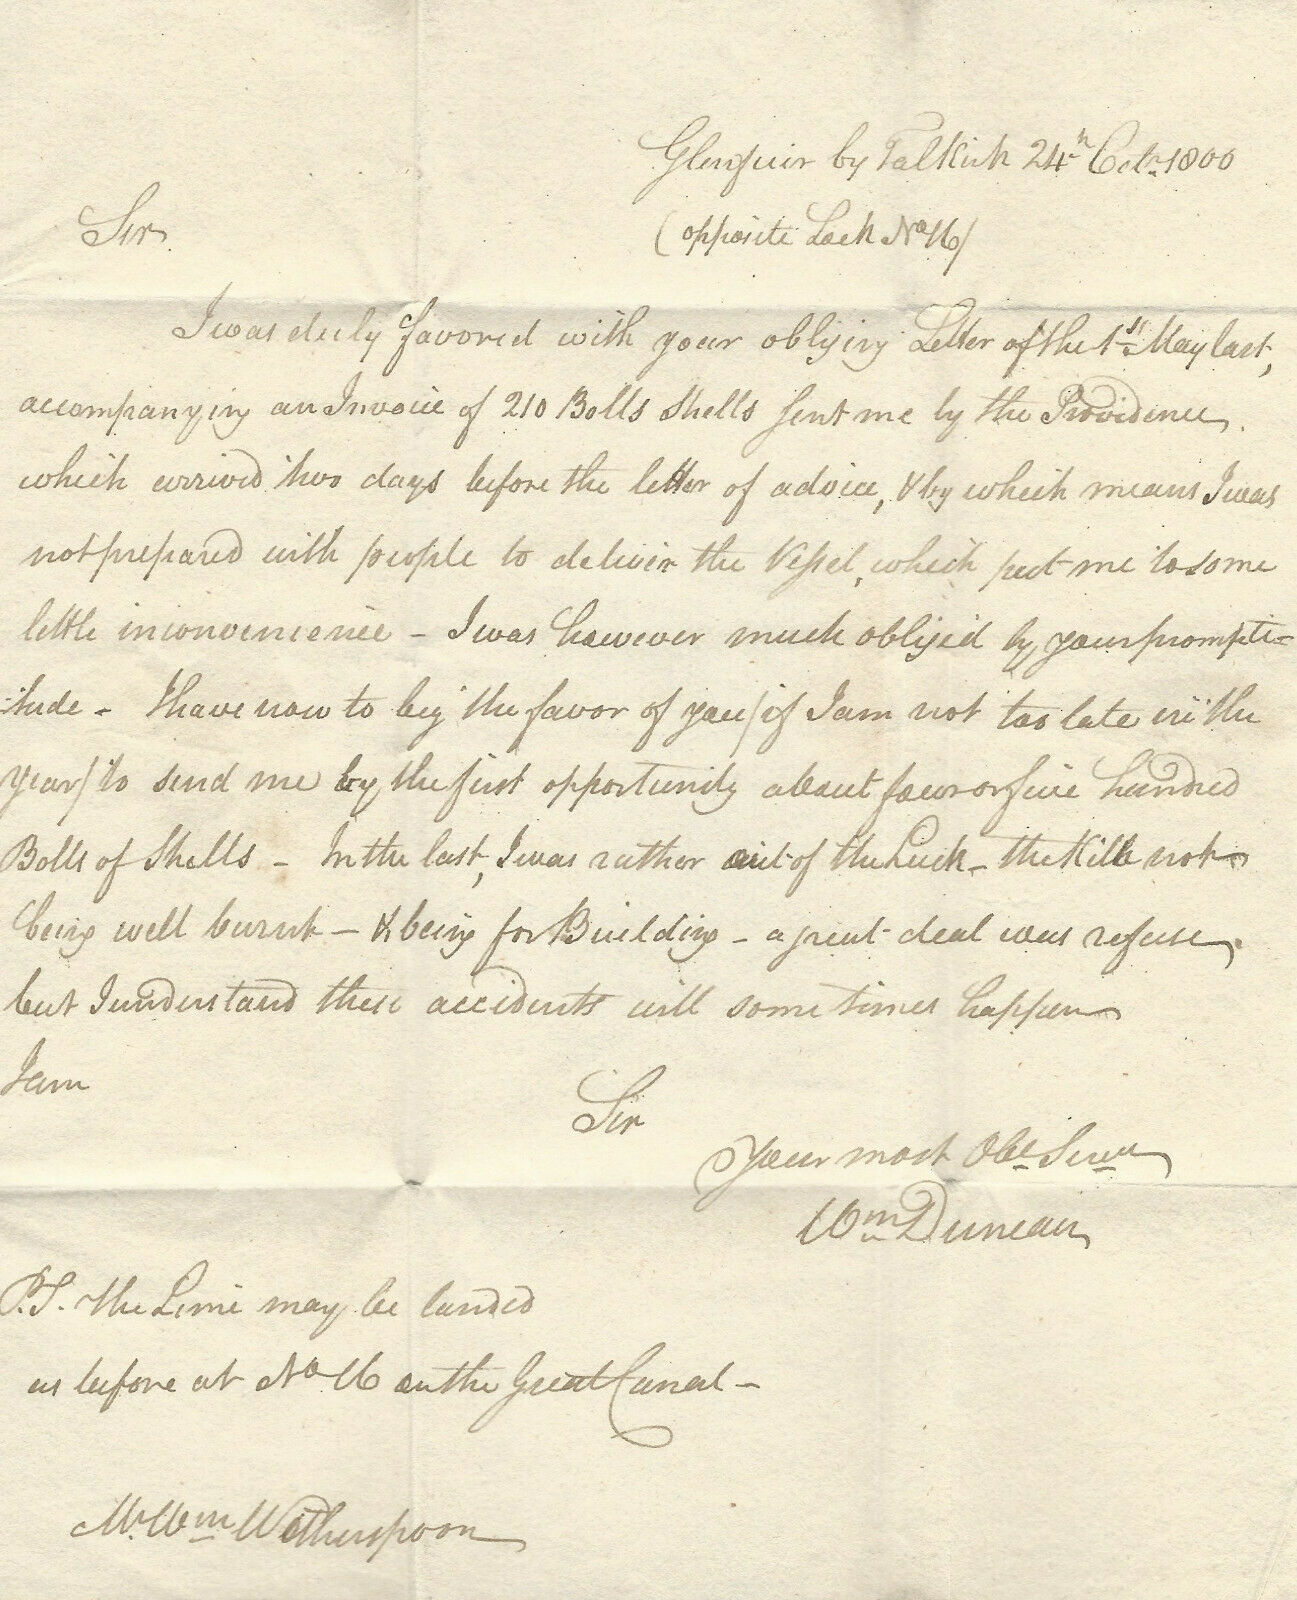 Glenfuir by Falkirk 24th Octr. 1800
(opposite Lock No 16)
Sir
I was duly favored with your obliging Letter of the 1st May last,
accompanying an Invoice of 210 Bolls Shells sent me by the Providence,
which arrived two days before the letter of advice, & by which means I was
not prepared with people to deliver the Vessel, which put me to some
little inconvenience - I was however much oblig'd by your prompti-
-tude - I have now to beg the favor of you (if I am not too late in the
year) to send me by the first opportunity about four or five hundred
Bolls of Shells - In the last, I was rather out of the Luck - the Kill not
being well burnt - & being for Building - a great deal was refuse,
but I understand these accidents will some times happen
I am
Sir
Your most Obt. Servt.
Wm Duncan
P.S. the Lime may be landed
as before at No 16 on the Great Canal -
Mr. Wm Witherspoon